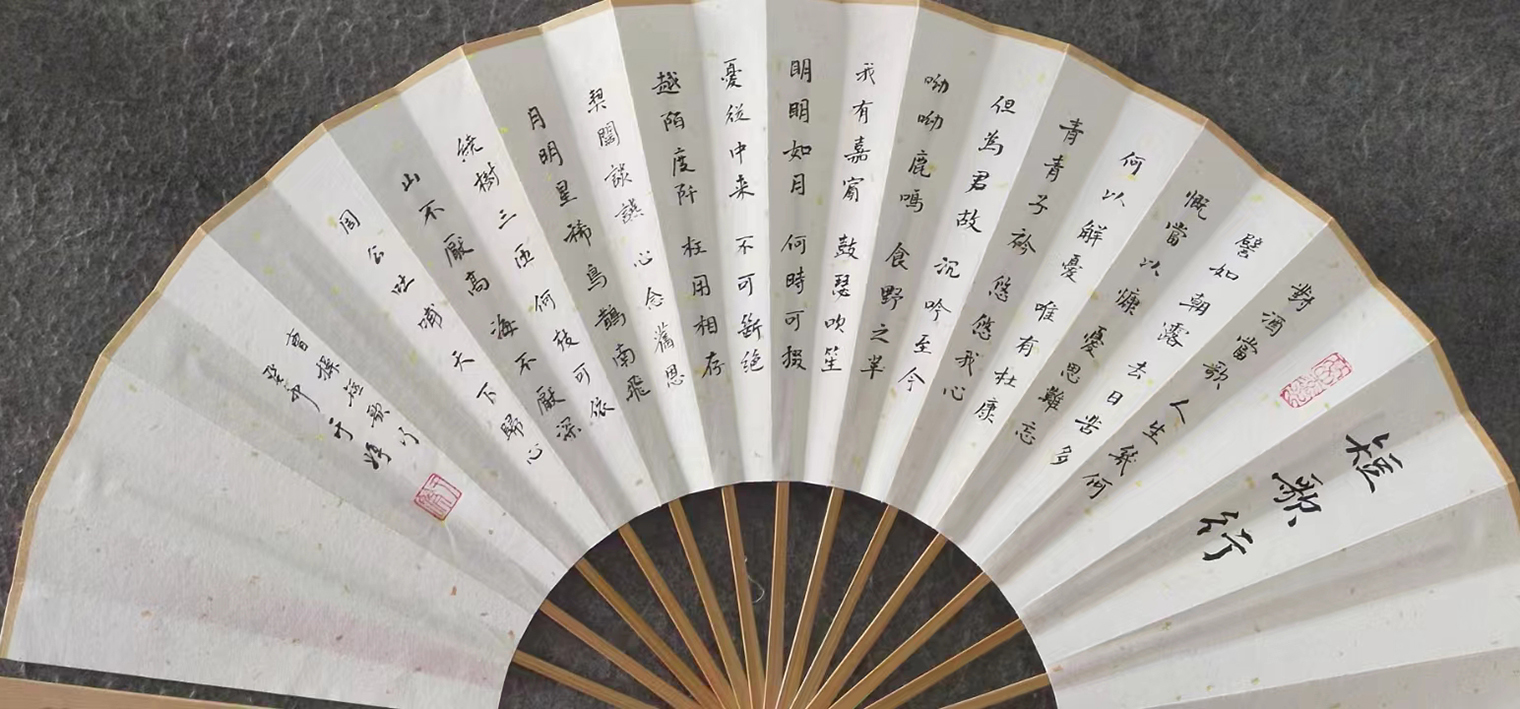 短歌行
對酒當歌 人生幾何
譬如朝露 去日苦多
慨當以慷 憂思難忘
何以解憂 唯有杜康
青青子衿 悠悠我心
但為君故 沉吟至今
呦呦鹿鳴 食野之苹
我有嘉賓 鼓瑟吹笙
明明如月 何時可掇
憂從中来 不可斷絕
越陌度阡 枉用相存
契闊談讌 心念舊恩
月明星稀 烏鵲南飛
繞樹三匝 何枝可依
山不厭高 海不厭深
周公吐哺 天下歸心
曹操短歌行
癸卯 于